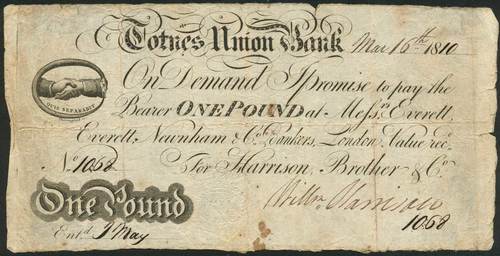 Totnes Union Bank
Mar 16th 1810
On Demand I promise to pay the
Bearer ONE POUND at Messrs. Everett,
Everett, Newnham & Co. Bankers, London, Value recd.
QUIS SEPARABIT
No. 1068 For Harrison, Brother & Co.
Willm. Harrison
One Pound
1068
Entd. J May